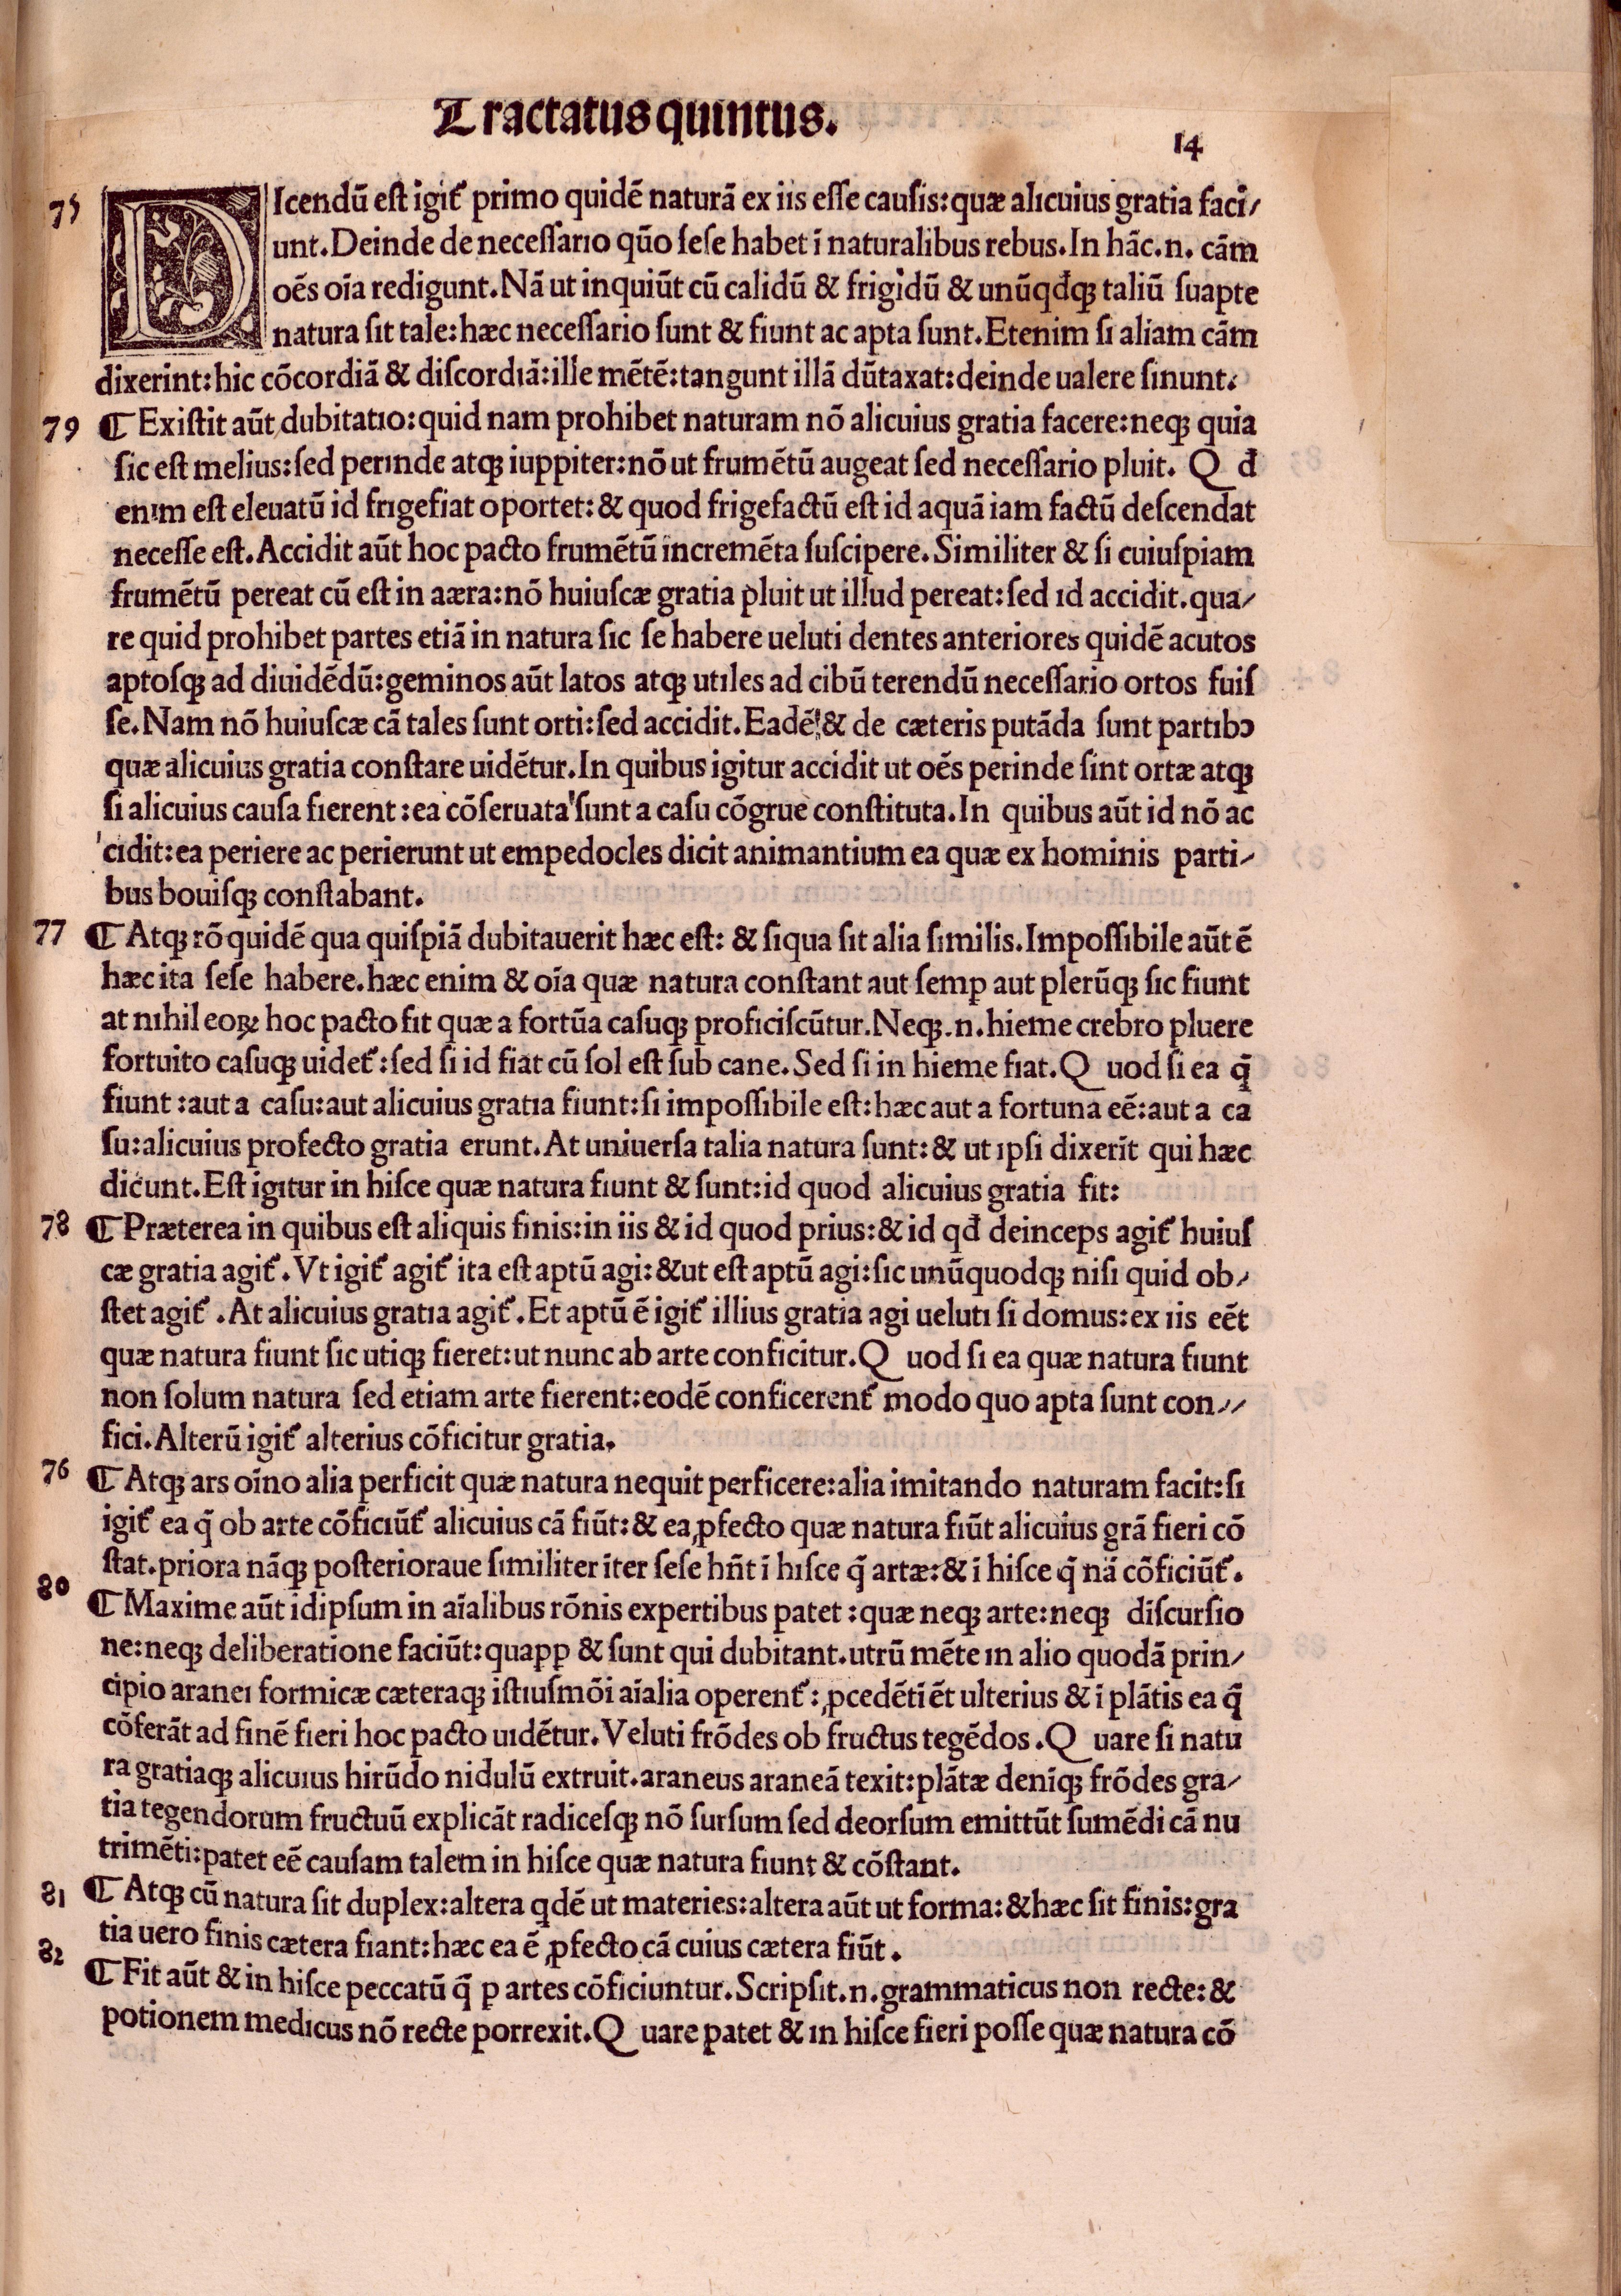 Tractatus quintus.
14
75 DIcendū est igit̃ primo quidē naturā ex iis esse causis:quæ alicuius gratia faci/
unt.Deinde de necessario qūo sese habet ī naturalibus rebus.In hāc.n. cām
oēs oīa redigunt.Nā ut inquiūt cū calidū & frigidū & unūqđqꝫ taliū suapte
natura sit tale:hæc necessario sunt & fiunt ac apta sunt.Etenim si aliam cām
dixerint:hic cōcordiā & discordiā:ille mētē:tangunt illā dūtaxat:deinde ualere sinunt.
79 ¶ Existit aūt dubitatio:quid nam prohibet naturam nō alicuius gratia facere:neqꝫ quia
sic est melius:sed perinde atqꝫ iuppiter:nō ut frumētū augeat sed necessario pluit. Q đ
enim est eleuatū id frigefiat oportet:& quod frigefactū est id aquā iam factū descendat
necesse est.Accidit aūt hoc pacto frumētū incremēta suscipere.Similiter & si cuiuspiam
frumētū pereat cū est in aæra:nō huiuscæ gratia pluit ut illud pereat:sed id accidit.qua/
re quid prohibet partes etiā in natura sic se habere ueluti dentes anteriores quidē acutos
aptosqꝫ ad diuidēdū:geminos aūt latos atqꝫ utiles ad cibū terendū necessario ortos fuis
se.Nam nō huiuscæ cā tales sunt orti:sed accidit.Eadē & de cæteris putāda sunt partibꝰ
quæ alicuius gratia constare uidētur.In quibus igitur accidit ut oēs perinde sint ortæ atqꝫ
si alicuius causa fierent:ea cōseruata sunt a casu cōgrue constituta.In quibus aūt id nō ac
cidit:ea periere ac perierunt ut empedocles dicit animantium ea quæ ex hominis parti/
bus bouisqꝫ constabant.
77 ¶ Atqꝫ rō quidē qua quispiā dubitauerit hæc est: & siqua sit alia similis.Impossibile aūt ē
hæc ita sese habere.hæc enim & oīa quæ natura constant aut semꝑ aut plerūqꝫ sic fiunt
at nihil eoꝝ hoc pacto fit quæ a fortūa casuqꝫ proficiscūtur.Neqꝫ.n.hieme crebro pluere
fortuito casuqꝫ uidet̃:sed si id fiat cū sol est sub cane.Sed si in hieme fiat.Q uod si ea q̄
fiunt :aut a casu:aut alicuius gratia fiunt:si impossibile est:hæc aut a fortuna eē:aut a ca
su:alicuius profecto gratia erunt.At uniuersa talia natura sunt:& ut ipsi dixerīt qui hæc
dicunt.Est igitur in hisce quæ natura fiunt & sunt:id quod alicuius gratia fit:
78 ¶ Præterea in quibus est aliquis finis:in iis & id quod prius:& id qđ deinceps agit̃ huius
cæ gratia agit̃.Vt igit̃ agit̃ ita est aptū agi:&ut est aptū agi:sic unūquodqꝫ nisi quid ob/
stet agit̃ .At alicuius gratia agit̃.Et aptū ē igit̃ illius gratia agi ueluti si domus:ex iis eēt
quæ natura fiunt sic utiqꝫ fieret:ut nunc ab arte conficitur.Q uod si ea quæ natura fiunt
non solum natura sed etiam arte fierent:eodē conficerent̃ modo quo apta sunt con//
fici.Alterū igit̃ alterius cōficitur gratia.
76 ¶ Atqꝫ ars oīno alia perficit quæ natura nequit perficere:alia imitando naturam facit:si
igit̃ ea q̄ ob arte cōficiūt̃ alicuius cā fiūt:& ea ꝓfecto quæ natura fiūt alicuius grā fieri cō
stat.priora nāqꝫ posterioraue similiter īter sese hn̄t ī hisce q̄ artæ:& ī hisce q̄ nā cōficiūt̃.
80 ¶ Maxime aūt idipsum in aīalibus rōnis expertibus patet :quæ neqꝫ arte:neqꝫ discursio
ne:neqꝫ deliberatione faciūt:quapꝑ & sunt qui dubitant.utrū mēte in alio quodā prin/
cipio aranei formicæ cæteraqꝫ istiusmōi aīalia operent̃: ꝓcedētī ēt ulterius & ī plātis ea q̄
cōferāt ad finē fieri hoc pacto uidētur.Veluti frōdes ob fructus tegēdos.Q uare si natu
ra gratiaqꝫ alicuius hirūdo nidulū extruit.araneus araneā texit:plātæ deniqꝫ frōdes gra/
tia tegendorum fructuū explicāt radicesqꝫ nō sursum sed deorsum emittūt sumēdi cā nu
trimēti:patet eē causam talem in hisce quæ natura fiunt & cōstant.
81 ¶ Atqꝫ cū natura sit duplex:altera qdē ut materies:altera aūt ut forma:&hæc sit finis:gra
tia uero finis cætera fiant:hæc ea ē ꝓfecto cā cuius cætera fiūt.
82 ¶ Fit aūt & in hisce peccatū q̄ ꝑ artes cōficiuntur.Scripsit.n.grammaticus non recte:&
potionem medicus nō recte porrexit.Q uare patet & in hisce fieri posse quæ natura cō